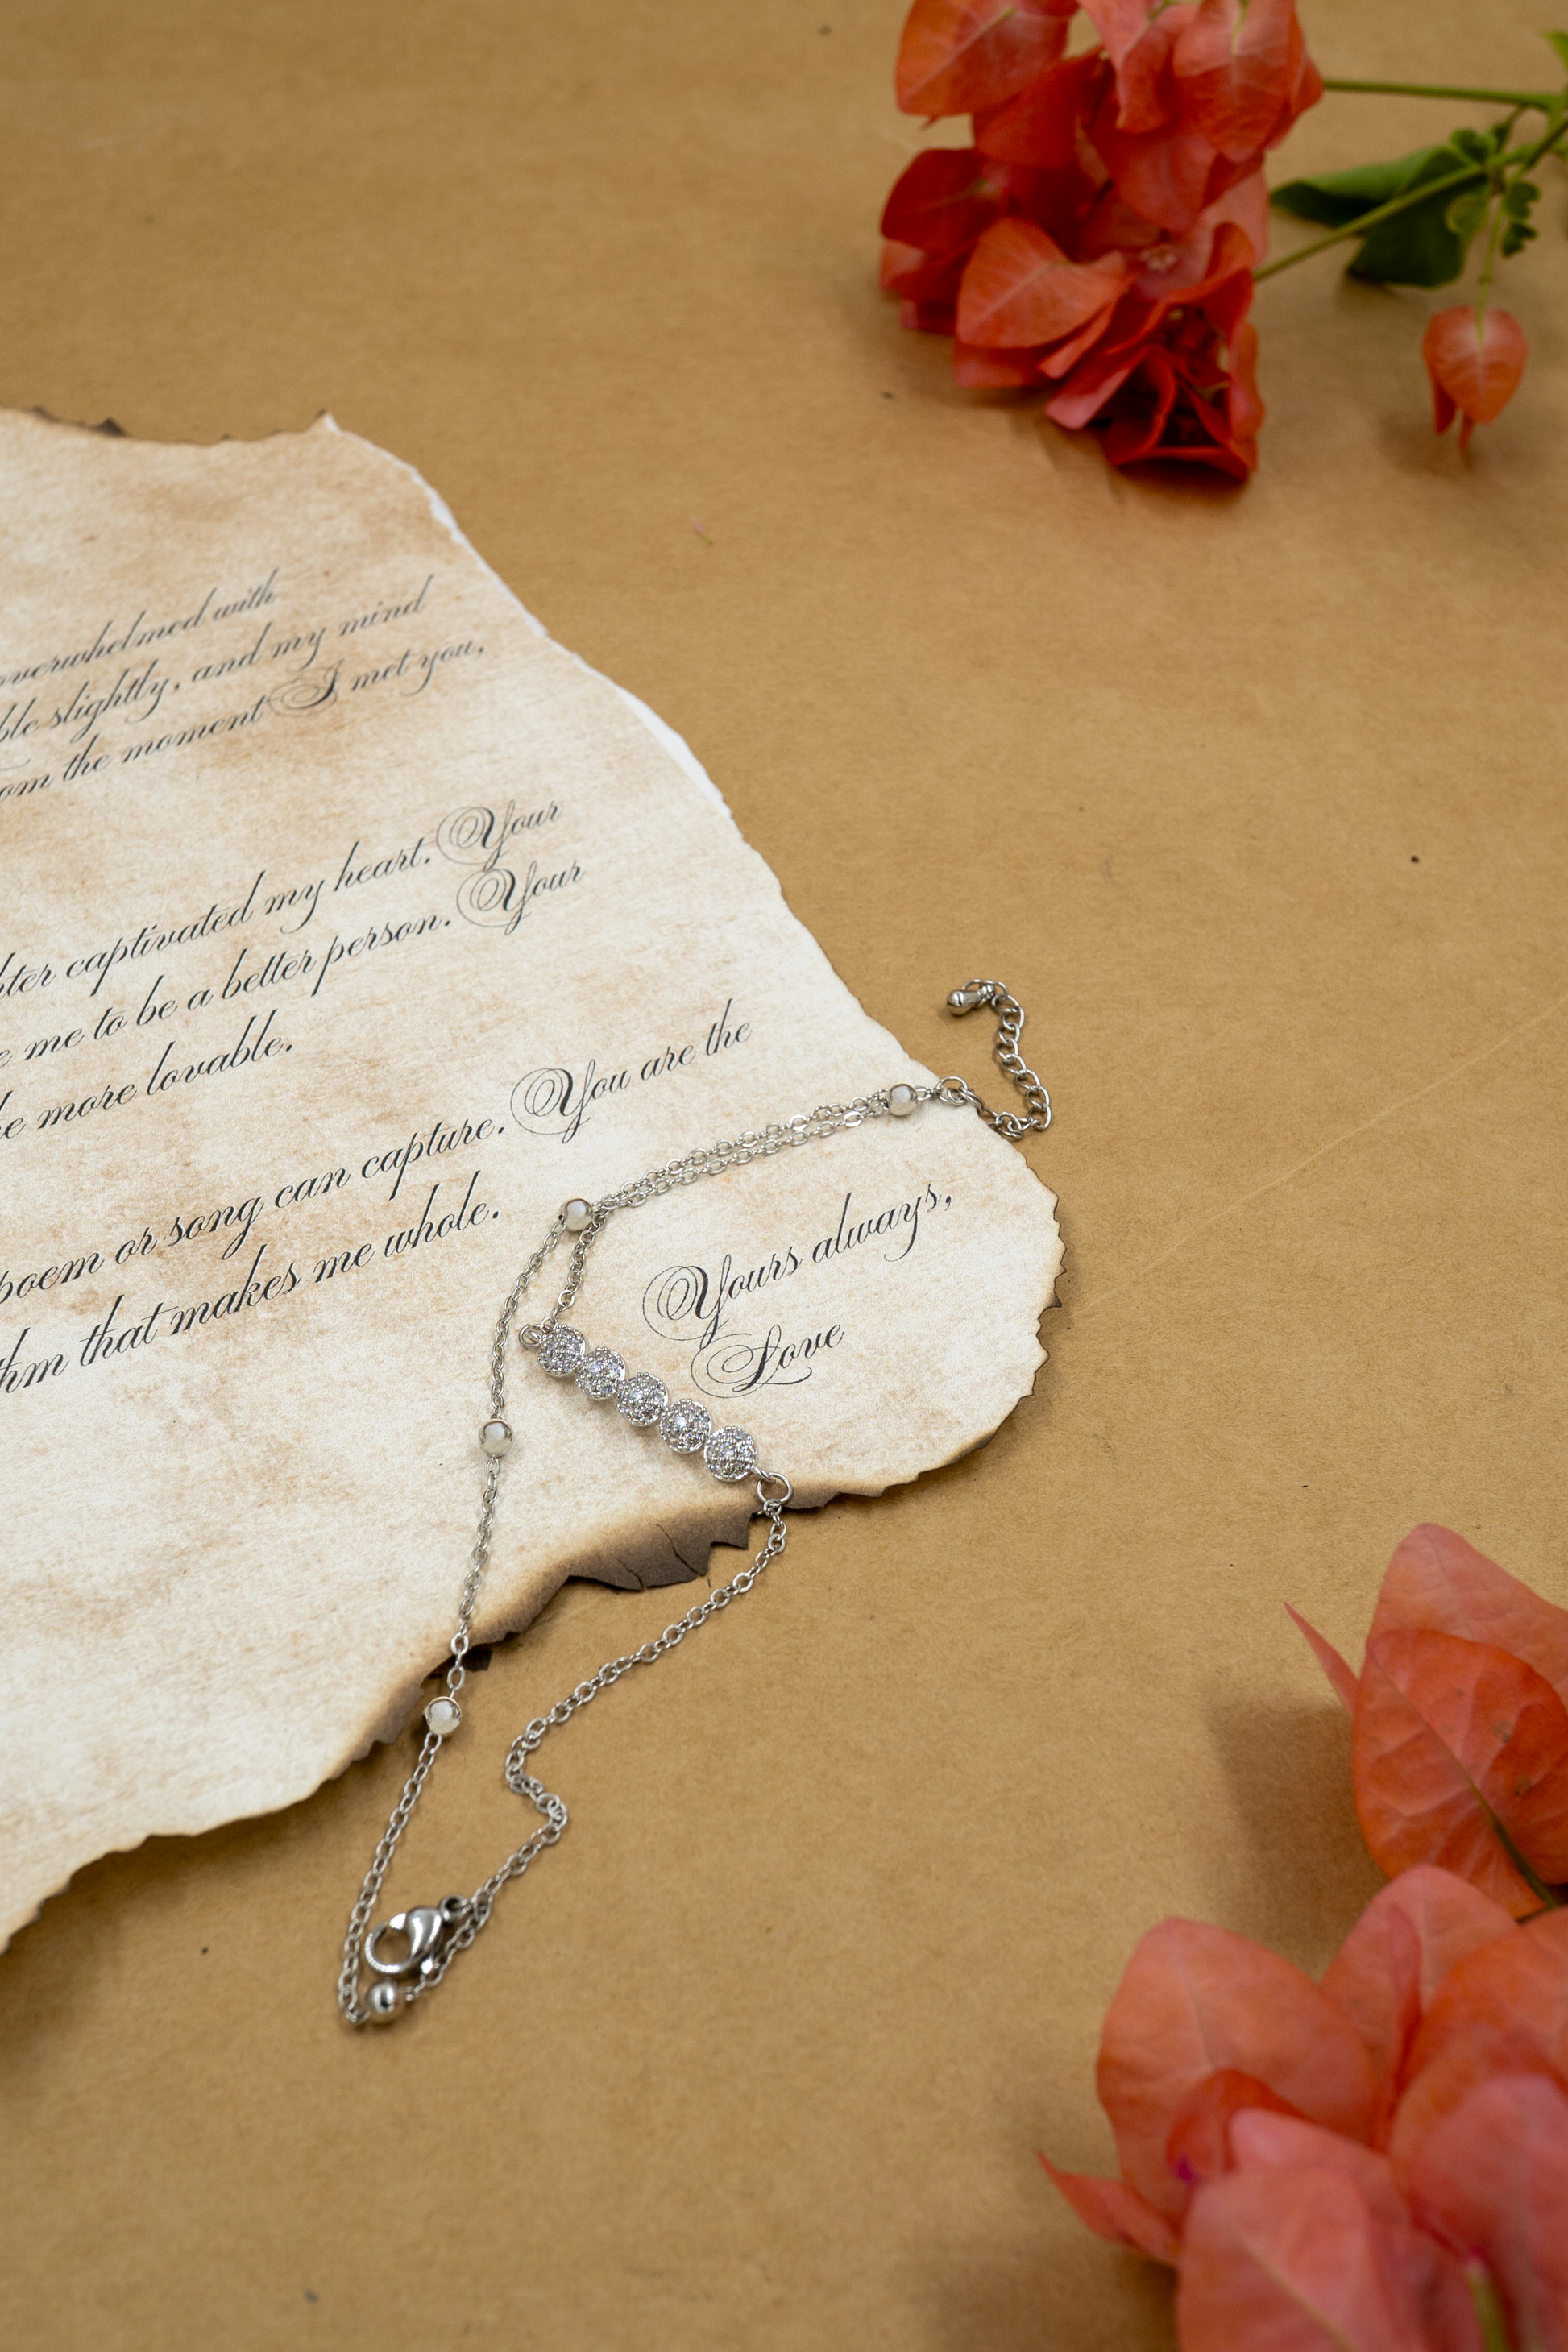 overwhelmed with
slightly, and my mind
the moment I met you,
captivated my heart. Your
me to be a better person. Your
more lovable.
poem or song can capture. You are the
that makes me whole.
Yours always,
Love